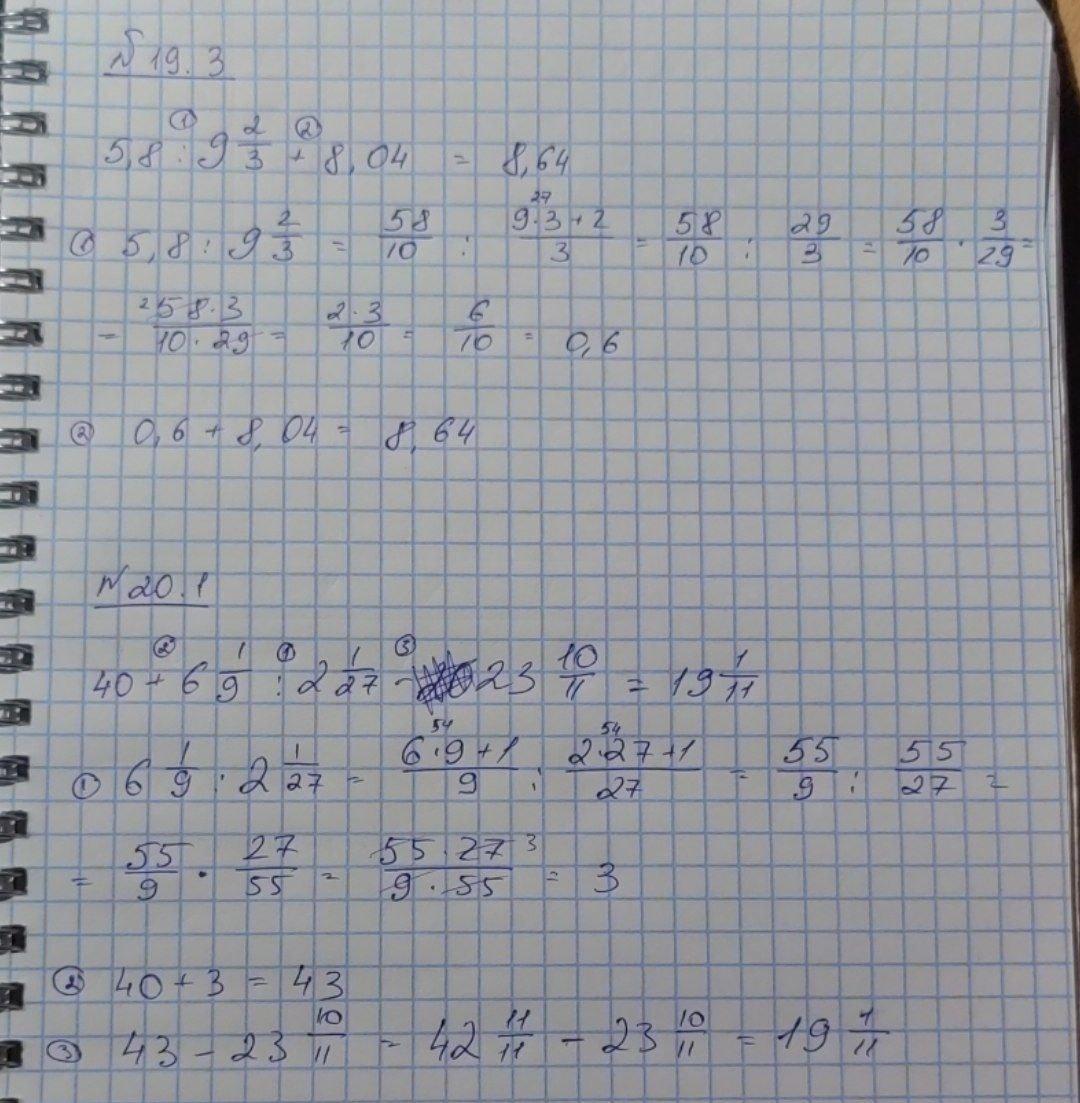 № 19.3
5,8 :① 9 2/3 +② 8,04 = 8,64
① 5,8 : 9 2/3 = 58/10 : (9·3 + 2)/3 = 58/10 : 29/3 = 58/10 · 3/29 =
27
= 58·3/10·29 = 2·3/10 = 6/10 = 0,6
2
② 0,6 + 8,04 = 8,64
№ 20.1
40 +② 6 1/9 :① 2 1/27 -③ 23 10/11 = 19 1/11
① 6 1/9 : 2 1/27 = (6·9 + 1)/9 : (2·27 + 1)/27 = 55/9 : 55/27 =
54 54
= 55/9 · 27/55 = 55·27/9·55 = 3
3
② 40 + 3 = 43
③ 43 - 23 10/11 = 42 11/11 - 23 10/11 = 19 1/11